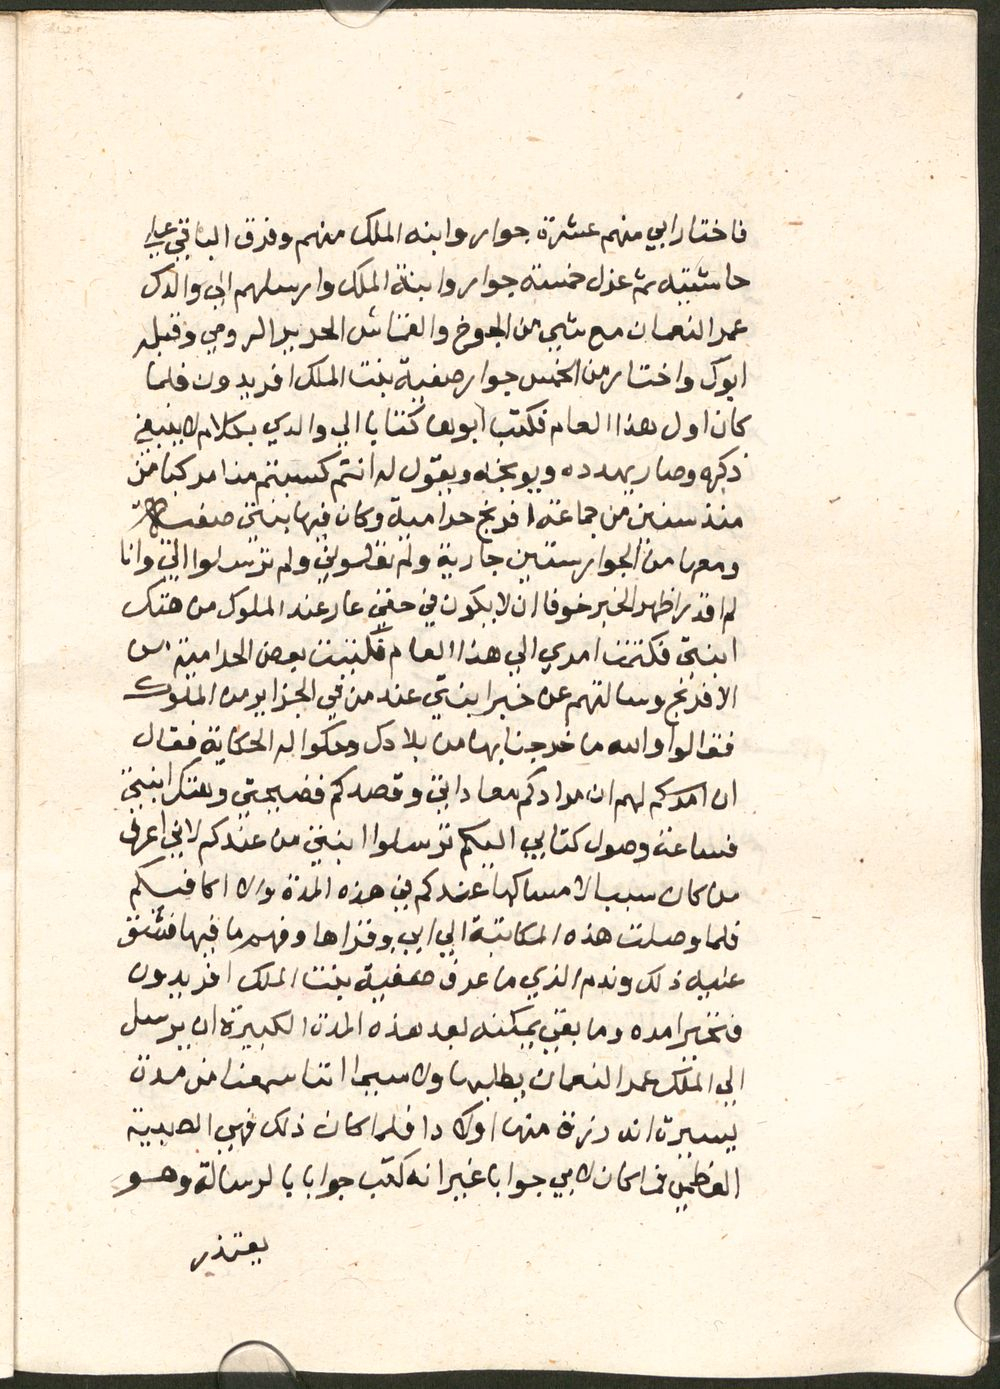 فاختار ابي منهم عشرة جوار وابنه الملك منهم وفرق الباقي علي
حاشيته ثم عزل خمسة جوار وابنة الملك وارسلهم الي والدك
عمر النعمان مع شي من الجوخ والقماش الحرير الرومي وقبله
ابوك واختار من الخمس جوار صفية بنت الملك افريدون فلما
كان اول هذا العام فكتب ابوها كتابا الي والدي بكلام لا ينبغي
ذكره وصار يهدده ويوبخه ويقول له انتم كسبتم منا مركبا من
منذ سنين من جماعة افرنج حرامية وكان فيها بنتي صفية
ومعها من الجوار ستين جارية ولم تعلموني ولم ترسلوا الي وانا
لم اقدر اظهر الخبر خوفا ان لا يكون في حقي عار عند الملوك من هتك
ابنتي فكتمت امري الي هذا العام فكتبت بعض الحرامية
الافرنج وسالتهم عن خبر ابنتي عند من في الجزاير من الملوك
فقالوا والله ما خرجنا بها من بلادك وحكوا له الحكاية فقال
ان امركم لهم ان مرادكم معاداتي وقصدكم فضيحتي وهتك ابنتي
فساعة وصول كتابي اليكم ترسلوا ابنتي من عندكم لاني اعرف
من كان سببا لامساكها عندكم في هذه المدة ولا اكافيكم
فلما وصلت هذه المكاتبة الي ابي وقراها وفهم ما فيها فشق
عليه ذلك وندم الذي ما عرف صفية بنت الملك افريدون
فتحير امره وما بقي يمكنه بعد هذه المدة الكبيرة ان يرسل
الي الملك عمر النعمان يطلبها ولا سيما اننا سمعنا من مدة
يسيرة انه رزق منها اولادا فلما كان ذلك فهي المصيبة
العظمي فما كان لابي جوابا غير انه كتب جوابا بالرسالة وهو
يعتذر